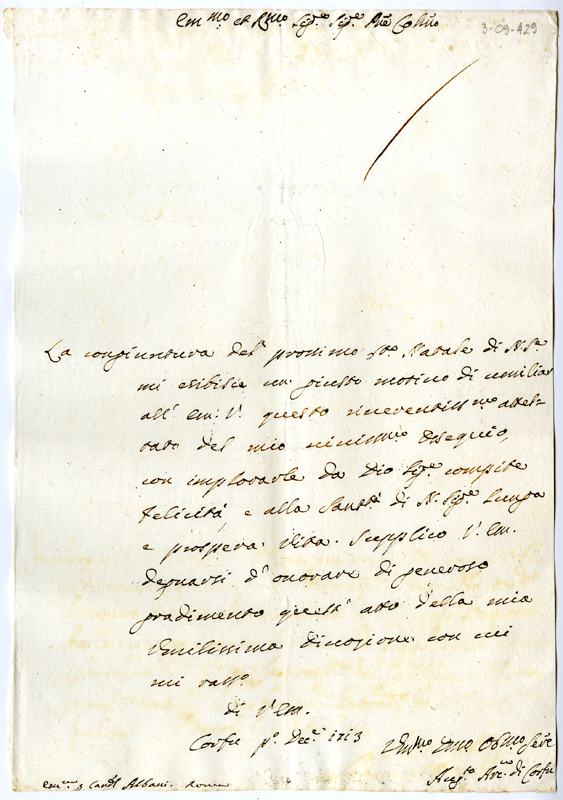 Em.mo et R.mo Sig.re Sig.re P.ne Col.mo
3-09-429
La congiuntura del prossimo S.to Natale di N. S.re
mi esibisce un giusto motivo di umiliar
all' Em: V. questo riverentiss.mo attes-
tato del mio ossequio,
con implorarle da Dio Sig.re compite
felicità, e alla Sant.tà di N. Sig.re lunga
e prospera Vita. Supplico V. Em.
degnarsi d'onorare di generoso
gradimento quest' atto della mia
Umilissima divozione con cui
mi rass.o
di V. Em.
Corfu p.o Dec.e 1713
Um.mo Div.mo Obl.mo Ser.e
Aug.o Arc.vo di Corfu
Em.mo S. Card.l Albani. Roma